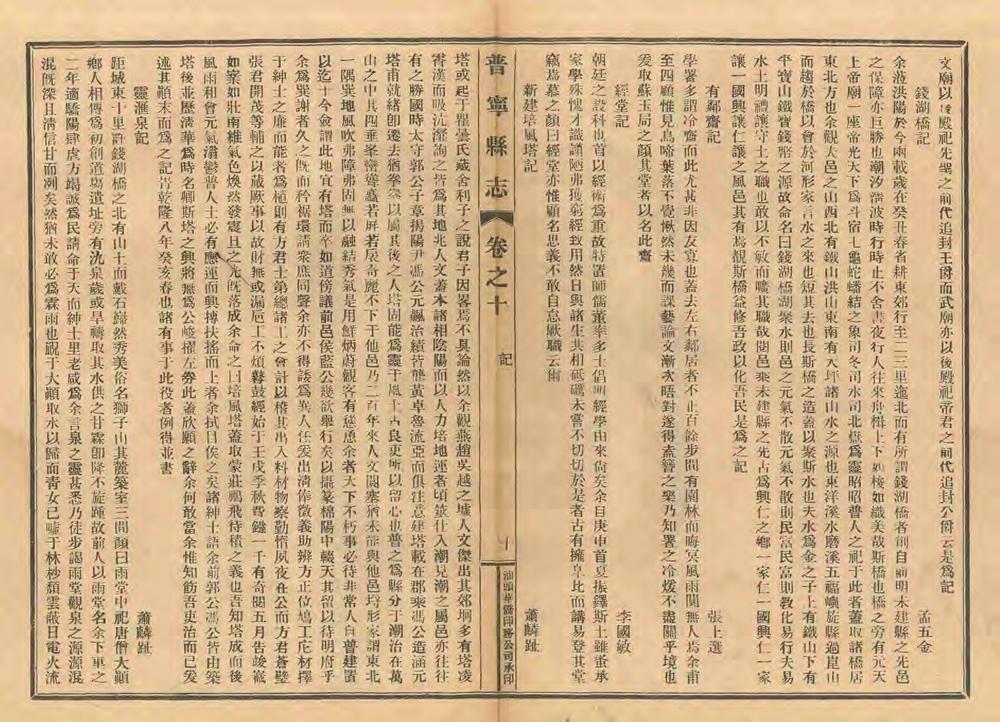 文廟以後殿祀先聖之前代追封王爵而武廟亦以後殿祀帝君之前代追封公爵云是爲記
錢湖橋記
孟五金
余蒞洪陽於今兩載歲在癸丑春省耕東郊行至二三里迤北而有所謂錢湖橋者創自前明未建縣之先邑
之保障亦巨勝也潮汐 波時行時止不舍晝夜行人往來舟楫上下如梭如織美哉斯橋也橋之旁有元天
上帝廟一座帝光天下爲斗宿七龜蛇蟠結之象司冬司水司北嶽爲靈昭昭普人之祀于此者蓋取諸橋居
東北方也余觀大邑之山西北有鐵山洪山東南有大坪諸山水之源也東洋溪水磨溪五福 旋縣過崑山
而趨於橋橋以會於河形家言水之來也短其去也長斯橋之造蓋以聚斯水也夫水爲金之子上有鐵山下有
平寶山鐵寶錢幣之源故命名曰錢湖橋湖聚水則邑之元氣不散元氣不散則民富民富則教化易行夫易
水土明禮讓守土之職也敢以不敏而曠其職哉閱邑乘未建縣之先古爲興仁之鄉一家仁一國興仁一家
讓一國興讓仁讓之風邑其有焉覩斯橋益修吾政以化吾民是爲之記
有鄰齋記
張上選
學署多謂冷齋而此尤甚非因友寡也蓋去左右鄰居者不止百餘步間有園林而晦冥風雨闃無人焉余甫
至四顧惟見鳥啼葉落不覺愀然未幾而課藝論文漸次晤對遂得盍簪之樂乃知署之冷煖不盡關乎境也
爰取蘇玉局之顏其堂者以名此齋
經堂記
李國敏
朝廷之設科也首以經術爲重故特置師儒董率多士倡明經學由來尙矣余自庚申首夏振鐸斯土雖忝承
家學殊愧才識譾陋弗獲窮經致用然日與諸生共相砥礪未嘗不切切於是者古有擁皐比而講易登其堂
竊焉慕之顏曰經堂亦惟顧名思義不敢自怠厥職云爾
新建培風塔記
蕭麟趾
塔或起于瞿曇氏藏舍利子之說君子因畧焉不具論然以余觀燕趙吳越之墟人文傑出其郊坰多有塔凌
霄漢而吸沆瀣詢之皆爲其地兆人文蓋本諸相陰陽而以人力培地運者頃筮仕入潮見潮之屬邑亦往往
有之勝國時太守郭公子章揭陽尹馮公元飇治績皆龔黃卓魯流亞而俱注意建塔載在郡乘馮公造涵元
塔甫就緖卽遷去猶拳拳以屬其後之人塔固能爲靈于風土古良吏所以留心也普之爲縣分于潮治在萬
山之中其四垂峯巒聳矗若屛若扆奇麗不下于他邑乃二百年來人文閼塞猶未能與他邑埒形家謂東北
一隅巽地風吹弗障弗固無以融結秀氣是用鮮炳蔚觀客有慫恿余者天下不朽事必待非常人自普建置
以迄于今僉謂此地宜有塔而卒如道傍議前邑侯藍公幾欲舉行矣以攝篆棉陽中輟天其留以待明府乎
余爲巽謝者久之旣而矜裾環請衆庶同聲余亦不得諉爲異人任爰出淸俸徵義助辨方正位鳩工庀材擇
于紳士之廉而能者爲植則有方君士第總諸工之會計以稽其出入料材物察勤惰夙夜在公而方君蒼璧
張君開茂等輔之以蕆厥事以故財無或漏卮工不煩鼛鼓經始于壬戌季秋費鏹一千有奇閱五月告竣巍
如崒如壯南維氣色煥然發震旦之光旣落成余命之曰培風塔蓋取蒙莊鵬飛待積之義也吾知塔成而後
風雨和會元氣滃鬱普人士必有應運而興摶扶搖而上者余拭目俟之矣諸紳士語余前郭公馮公皆由築
塔後並歷淸華爲時名卿斯塔之興將無爲公峻擢左劵此蓋欣願之辭余何敢當余惟知飭吾吏治而已爰
述其顚末而爲之記旹乾隆八年癸亥春也諸有事于此役者例得並書
靈滙泉記
蕭麟趾
距城東十里許錢湖橋之北有山土而戴石巋然秀美俗名獅子山其麓築室三間顏曰雨堂中祀唐僧大顚
鄉人相傳爲初創道場遺址旁有沇泉歲或旱禱取其水供之甘霖卽降不旋踵故前人以雨堂名余下車之
二年適驕陽肆虐方竭誠爲民請命于天而紳士里老咸爲余言泉之靈甚悉乃徒步謁雨堂觀泉之源源混
混旣深且淸信甘而冽矣然猶未敢必爲霖雨也覡于大顚取水以歸而靑女已噓于林杪頹雲蔽日電火流
普寧縣志
卷之十
記
十
汕頭華僑印務公司承印